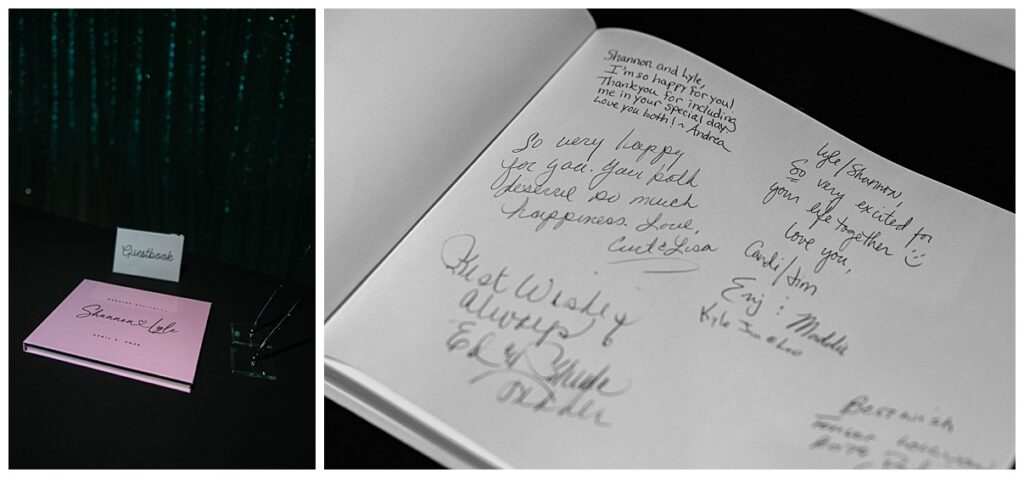 Guestbook
Shannon Lyle
Shannon and Lyle,
I'm so happy for you!
Thankyou for including
me in your special day.
Love you both! ~ Andrea
So very happy
for you. You both
deserve so much
happiness. Love,
Curt & Lisa
Best Wishes
Always
Ed &
Lyle/Shannon,
So very excited for
your life together
Love you,
Candi/Jim
Erij : Maddie
Kyle
Best wish